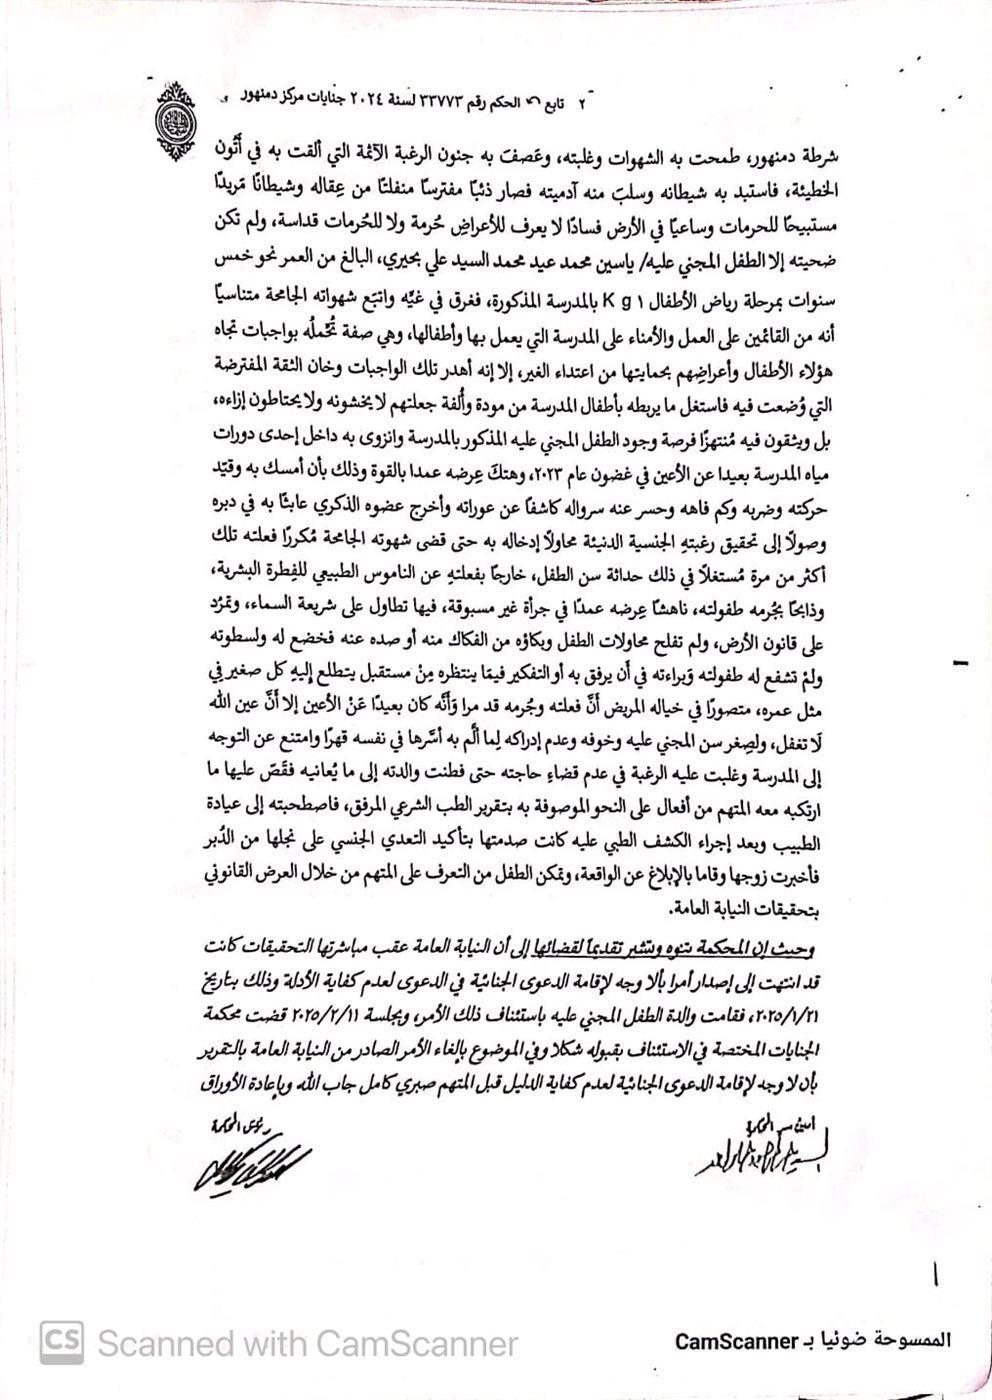 ٢ تابع الحكم رقم ٣٣٧٧٣ لسنة ٢٠٢٤ جنايات مركز دمنهور
شرطة دمنهور، طمحت به الشهوات وغلبته، وعَصفت به جنون الرغبة الآثمة التي ألقت به في أتُون
الخطيئة، فاستبد به شيطانه وسلبَ منه آدميته فصار ذئبًا مفترسًا منفلتًا من عِقاله وشيطانًا مَريدًا
مستبيحًا للحرمات وساعيًا في الأرض فسادًا لا يعرف للأعراضِ حُرمة ولا للحُرمات قداسة، ولم تكن
ضحيته إلا الطفل المجني عليه/ ياسين محمد عيد محمد السيد علي بحيري، البالغ من العمر نحو خمس
سنوات بمرحلة رياض الأطفال K g ١ بالمدرسة المذكورة، فغرق في غيِّه واتبَع شهواته الجامحة متناسيًا
أنه من القائمين على العمل والأمناء على المدرسة التي يعمل بها وأطفالها، وهي صفة تُحَّملُه بواجبات تجاه
هؤلاء الأطفال وأعراضِهم بحمايتها من اعتداء الغير، إلا إنه أهدر تلك الواجبات وخان الثقة المفترضة
التي وُضعت فيه فاستغل ما يربطه بأطفال المدرسة من مودة وأُلفة جعلتهم لا يخشونه ولا يحتاطون إزاءه،
بل ويثقون فيه مُنتهزًا فرصة وجود الطفل المجني عليه المذكور بالمدرسة وانزوى به داخل إحدى دورات
مياه المدرسة بعيدا عن الأعين في غضون عام ٢٠٢٣، وهتكَ عِرضه عمدا بالقوة وذلك بأن أمسك به وقيّد
حركته وضربه وكم فاهه وحسر عنه سرواله كاشفًا عن عوراته وأخرج عضوه الذكري عابثًا به في دبره
وصولًا إلى تحقيق رغبتهِ الجنسية الدنيئة محاولًا إدخاله به حتى قضى شهوته الجامحة مُكررًا فعلته تلك
أكثر من مرة مُستغلًا في ذلك حداثة سن الطفل، خارجًا بفعلتهِ عن الناموس الطبيعي للفِطرة البشرية،
وذابحًا بجُرمه طفولته، ناهشًا عِرضه عمدًا في جرأة غير مسبوقة، فيها تطاول على شريعة السماء، وتمرُد
على قانون الأرض، ولم تفلح محاولات الطفل وبكاؤه من الفكاك منه أو صده عنه فخضع له ولسطوته
ولمْ تشفع له طفولته وَبراءته في أَن يرفق به أو التفكير فيمَا ينتظره مِنْ مستقبل يتطلع إليهِ كل صغير فِي
مثل عمره، متصورًا في خياله المريض أَنَّ فعلته وجُرمه قد مرا وَأَنَّه كان بعيدًا عَنْ الأعين إلا أَنَّ عين الله
لَا تغفل، ولصِغر سن المجني عليه وخوفه وعدم إدراكه لِما ألَّم به أسَّرها في نفسه قهرًا وامتنع عن التوجه
إلى المدرسة وغلبت عليه الرغبة في عدم قضاءِ حاجته حتى فطنت والدته إلى ما يُعانيه فقَصّ عليها ما
ارتكبه معه المتهم من أفعال على النحو الموصوفة به بتقرير الطب الشرعي المرفق، فاصطحبته إلى عيادة
الطبيب وبعد إجراء الكشف الطبي عليه كانت صدمتها بتأكيد التعدي الجنسي على نجلها من الدُبر
فأخبرت زوجها وقاما بالإبلاغ عن الواقعة، وتمكن الطفل من التعرف على المتهم من خلال العرض القانوني
بتحقيقات النيابة العامة.
وحيث إن المحكمة تنوه وتشير تقديمًا لقضائها إلى أن النيابة العامة عقب مباشرتها التحقيقات كانت
قد انتهت إلى إصدار أمرا بألا وجه لإقامة الدعوى الجنائية في الدعوى لعدم كفاية الأدلة وذلك بتاريخ
٢٠٢٥/١/٢١، فقامت والدة الطفل المجني عليه باستئناف ذلك الأمر، وبجلسة ٢٠٢٥/٢/١١ قضت محكمة
الجنايات المختصة في الاستئناف بقبوله شكلا وفي الموضوع بإلغاء الأمر الصادر من النيابة العامة بالتقرير
بأن لا وجه لإقامة الدعوى الجنائية لعدم كفاية الدليل قبل المتهم صبري كامل جاب الله وبإعادة الأوراق
أمين سر المحكمة
رئيس المحكمة
CS Scanned with CamScanner
الممسوحة ضوئيا بـ CamScanner